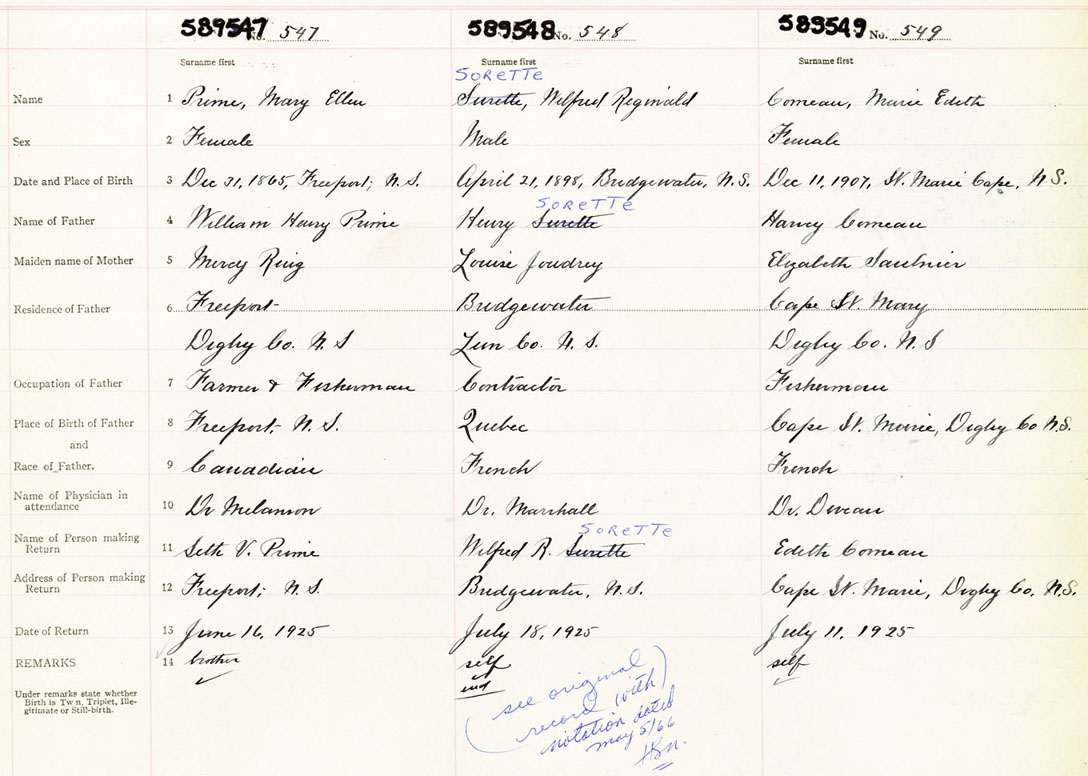 589547 No. 547 589548 No. 548 589549 No. 549
Surname first Surname first Surname first
SORETTE
Name 1 Prime, Mary Ellen Surette, Wilfred Reginald Comeau, Marie Edith
Sex 2 Female Male Female
Date and Place of Birth 3 Dec 31, 1865, Freeport; N.S. April 21, 1898, Bridgewater, N.S. Dec 11, 1907, St. Marie Cape, N.S.
SORETTE
Name of Father 4 William Henry Prime Henry Surette Harvey Comeau
Maiden name of Mother 5 Mercy Ring Louise Joudrey Elizabeth Saulnier
Residence of Father 6 Freeport Bridgewater Cape St. Mary
Digby Co. N.S Lun Co. N.S. Digby Co. N.S
Occupation of Father 7 Farmer & Fisherman Contractor Fisherman
Place of Birth of Father 8 Freeport, N.S. Quebec Cape St. Marie, Digby Co N.S.
and
Race of Father. 9 Canadian French French
Name of Physician in
attendance 10 Dr Melanson Dr. Marshall Dr. Deveau
SORETTE
Name of Person making
Return 11 Seth V. Prime Wilfred R. Surette Edith Comeau
Address of Person making
Return 12 Freeport; N.S. Bridgewater, N.S. Cape St. Marie, Digby Co. N.S.
Date of Return 13 June 16, 1925 July 18, 1925 July 11, 1925
REMARKS 14 brother self self
ind
Under remarks state whether
Birth is Twn, Triplet, Ille-
gitimate or Still-birth.
(see original
record with)
notation dated
May 5/66